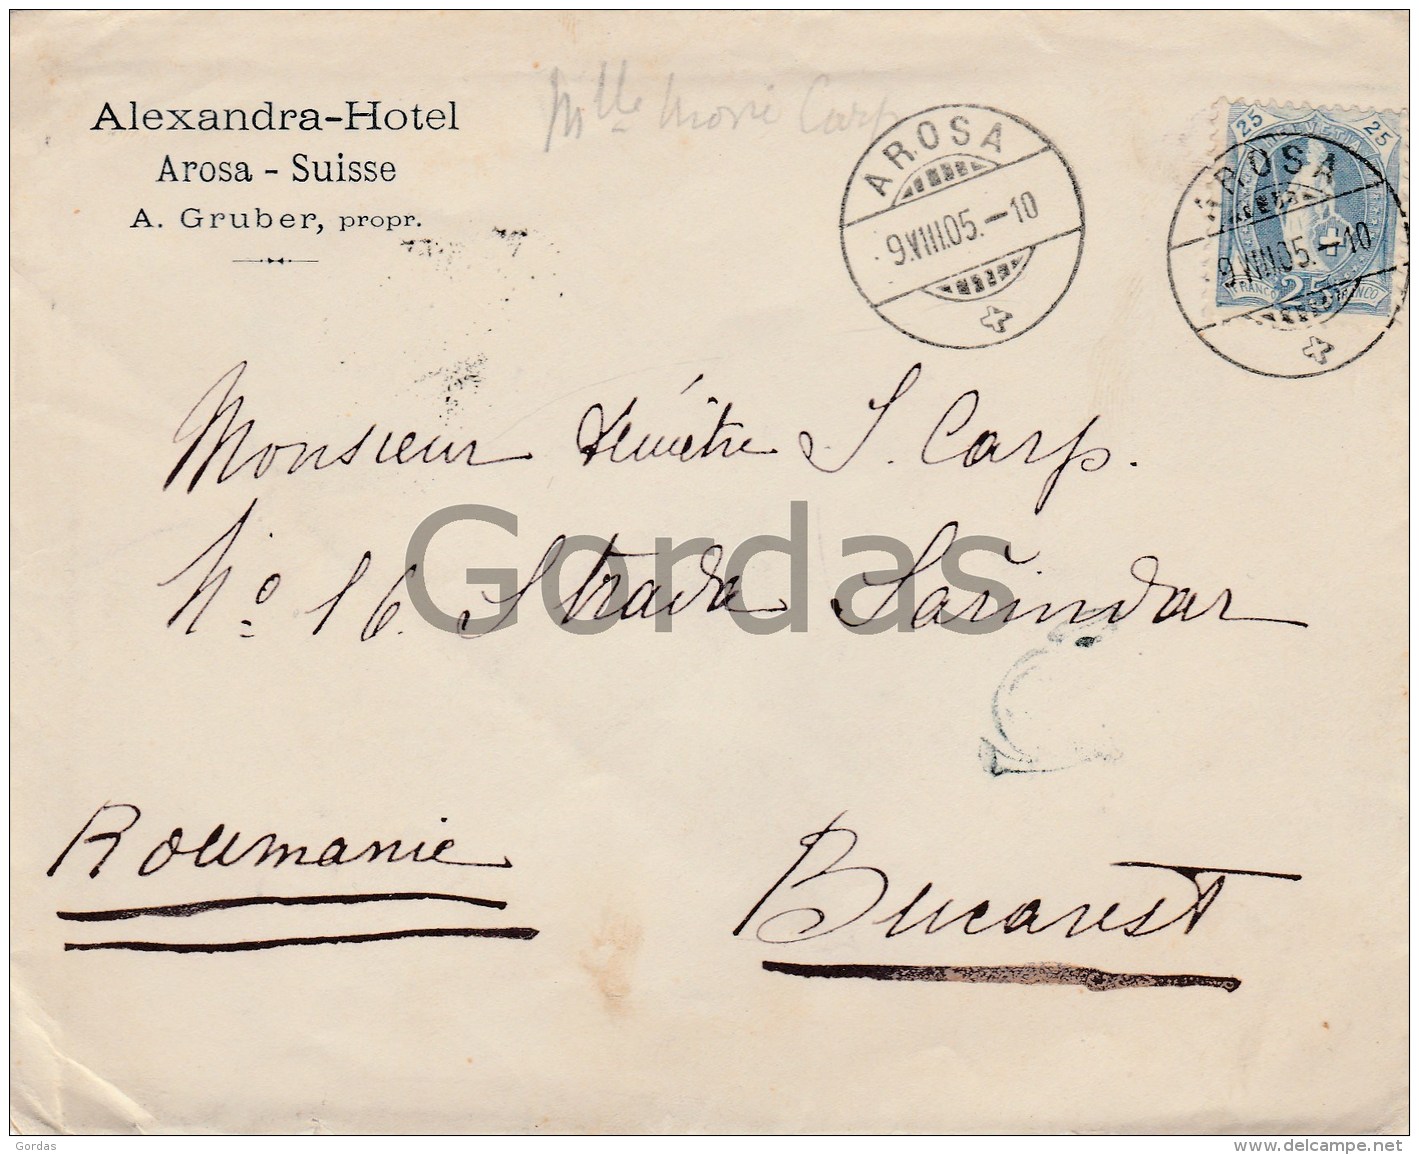 Alexandra-Hotel
Arosa - Suisse
A. Gruber, propr.
Mlle Carp
AROSA
9.VIII.05.-10
25 HELVETIA 25
FRANCO 25 FRANCO
AROSA
9.VIII.05.-10
Monsieur Démètre S. Carp.
No 16. Strada Sărindar
Gordas
Roumanie
Bucarest
Gordas
www.delcampe.net